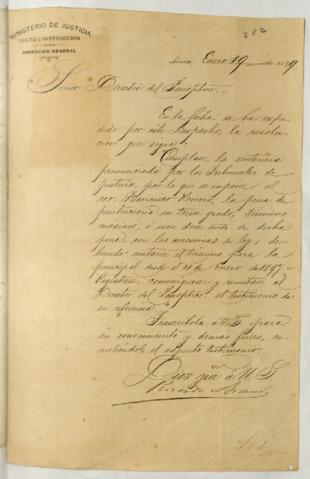 MINISTERIO DE JUSTICIA,
CULTO É INSTRUCCION
DIRECCION GENERAL
Lima, Enero 19 de 189
Señor Director del Panóptico.
En la fecha se ha expe-
dido por este Despacho, la resolu-
cion que sigue:
"Cúmplase la sentencia
pronunciada por los Tribunales de
Justicia, por la que se impone al
reo Francisco, la pena de
penitenciaría en tercer grado, término
máximo, ó sean doce años de dicha
pena, con las accesorias de ley; de-
biendo contarse el término para la
principal desde el de Enero de 1897.—
Regístrese, comuníquese y remítase al
Director del Panóptico, el testimonio de
su referencia."
Trascríbola á US. para
su conocimiento y demás fines, re-
mitiéndole el adjunto testimonio.
Dios gue. á U.S.
Ricardo